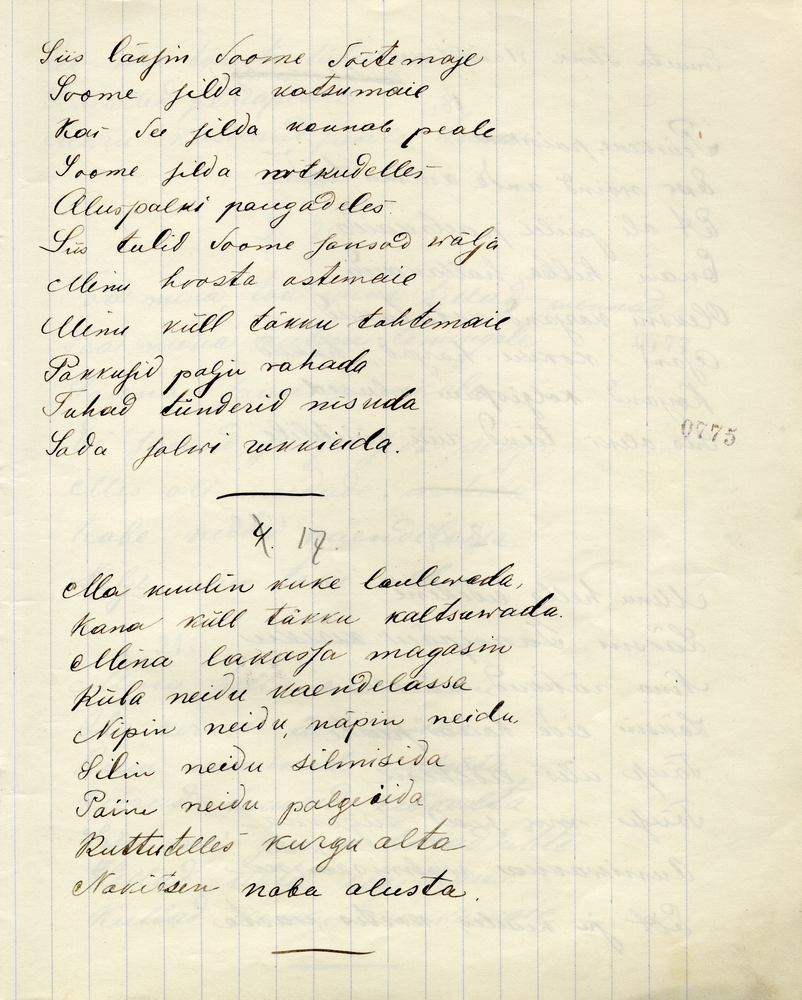 Siis lääsin Soome Sõitemaje
Soome silda katsumaie
Kas See silda kannab peale
Soome silda notkudelles
Aluspalki paugadeles.
Siis tulid Soome saksad wälja
Minu hoosta ostemaie
Minu küll täkku tahtemaie
Pakkusid palju rahada
Tuhad tünderid nisuda
Sada salwi rukkieida.
0775
4. 17.
Ma kuulin kuke laulewada,
Kana küll täkku kaltsuwada.
Mina lakassa magasin
Küla neidu kaendelassa
Nipin neidu, näpin neidu
Silin neidu silmisida
Paine neidu palgeiida
Ruttutelles kurgu alta
Nakitsen naba alusta.